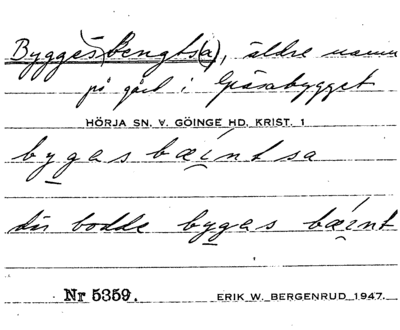 Byggės(bengts(a), äldre namn
på gård i Gäsabygget
HÖRJA SN. V. GÖINGE HD. KRIST. 1
bygas bæintsa
där bodde bygas bæint
Nr 5359. ERIK W. BERGENRUD 1947.